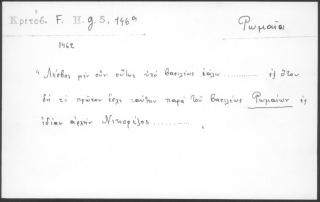 Κριτόβ. F. H. g. 5, 146ª
Ῥωμαῖοι
1462
"Λέσβος μὲν οὖν οὕτως ὑπὸ βασιλέως ἑάλω ............. ἐξ ὅτου
δὴ τὸ πρῶτον ἔσχε ταύτην παρὰ τοῦ βασιλέως Ῥωμαίων ἐς
ἰδίαν ἀρχὴν
"